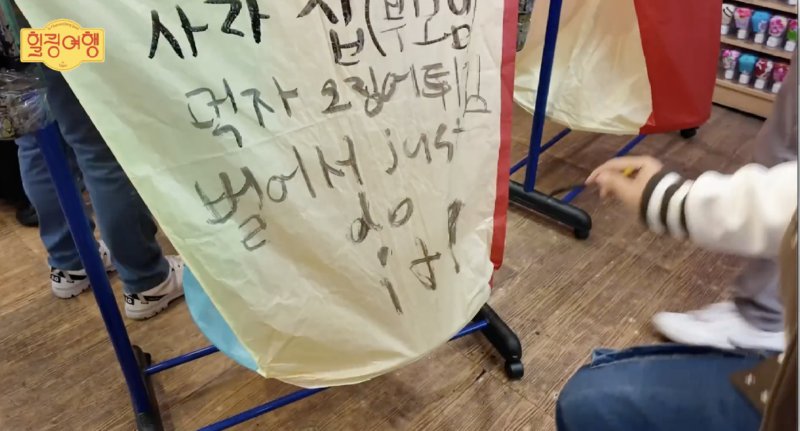 힐링여행
사라 집(부모님
먹자 오징어튀김
벌어서 just
do
it!